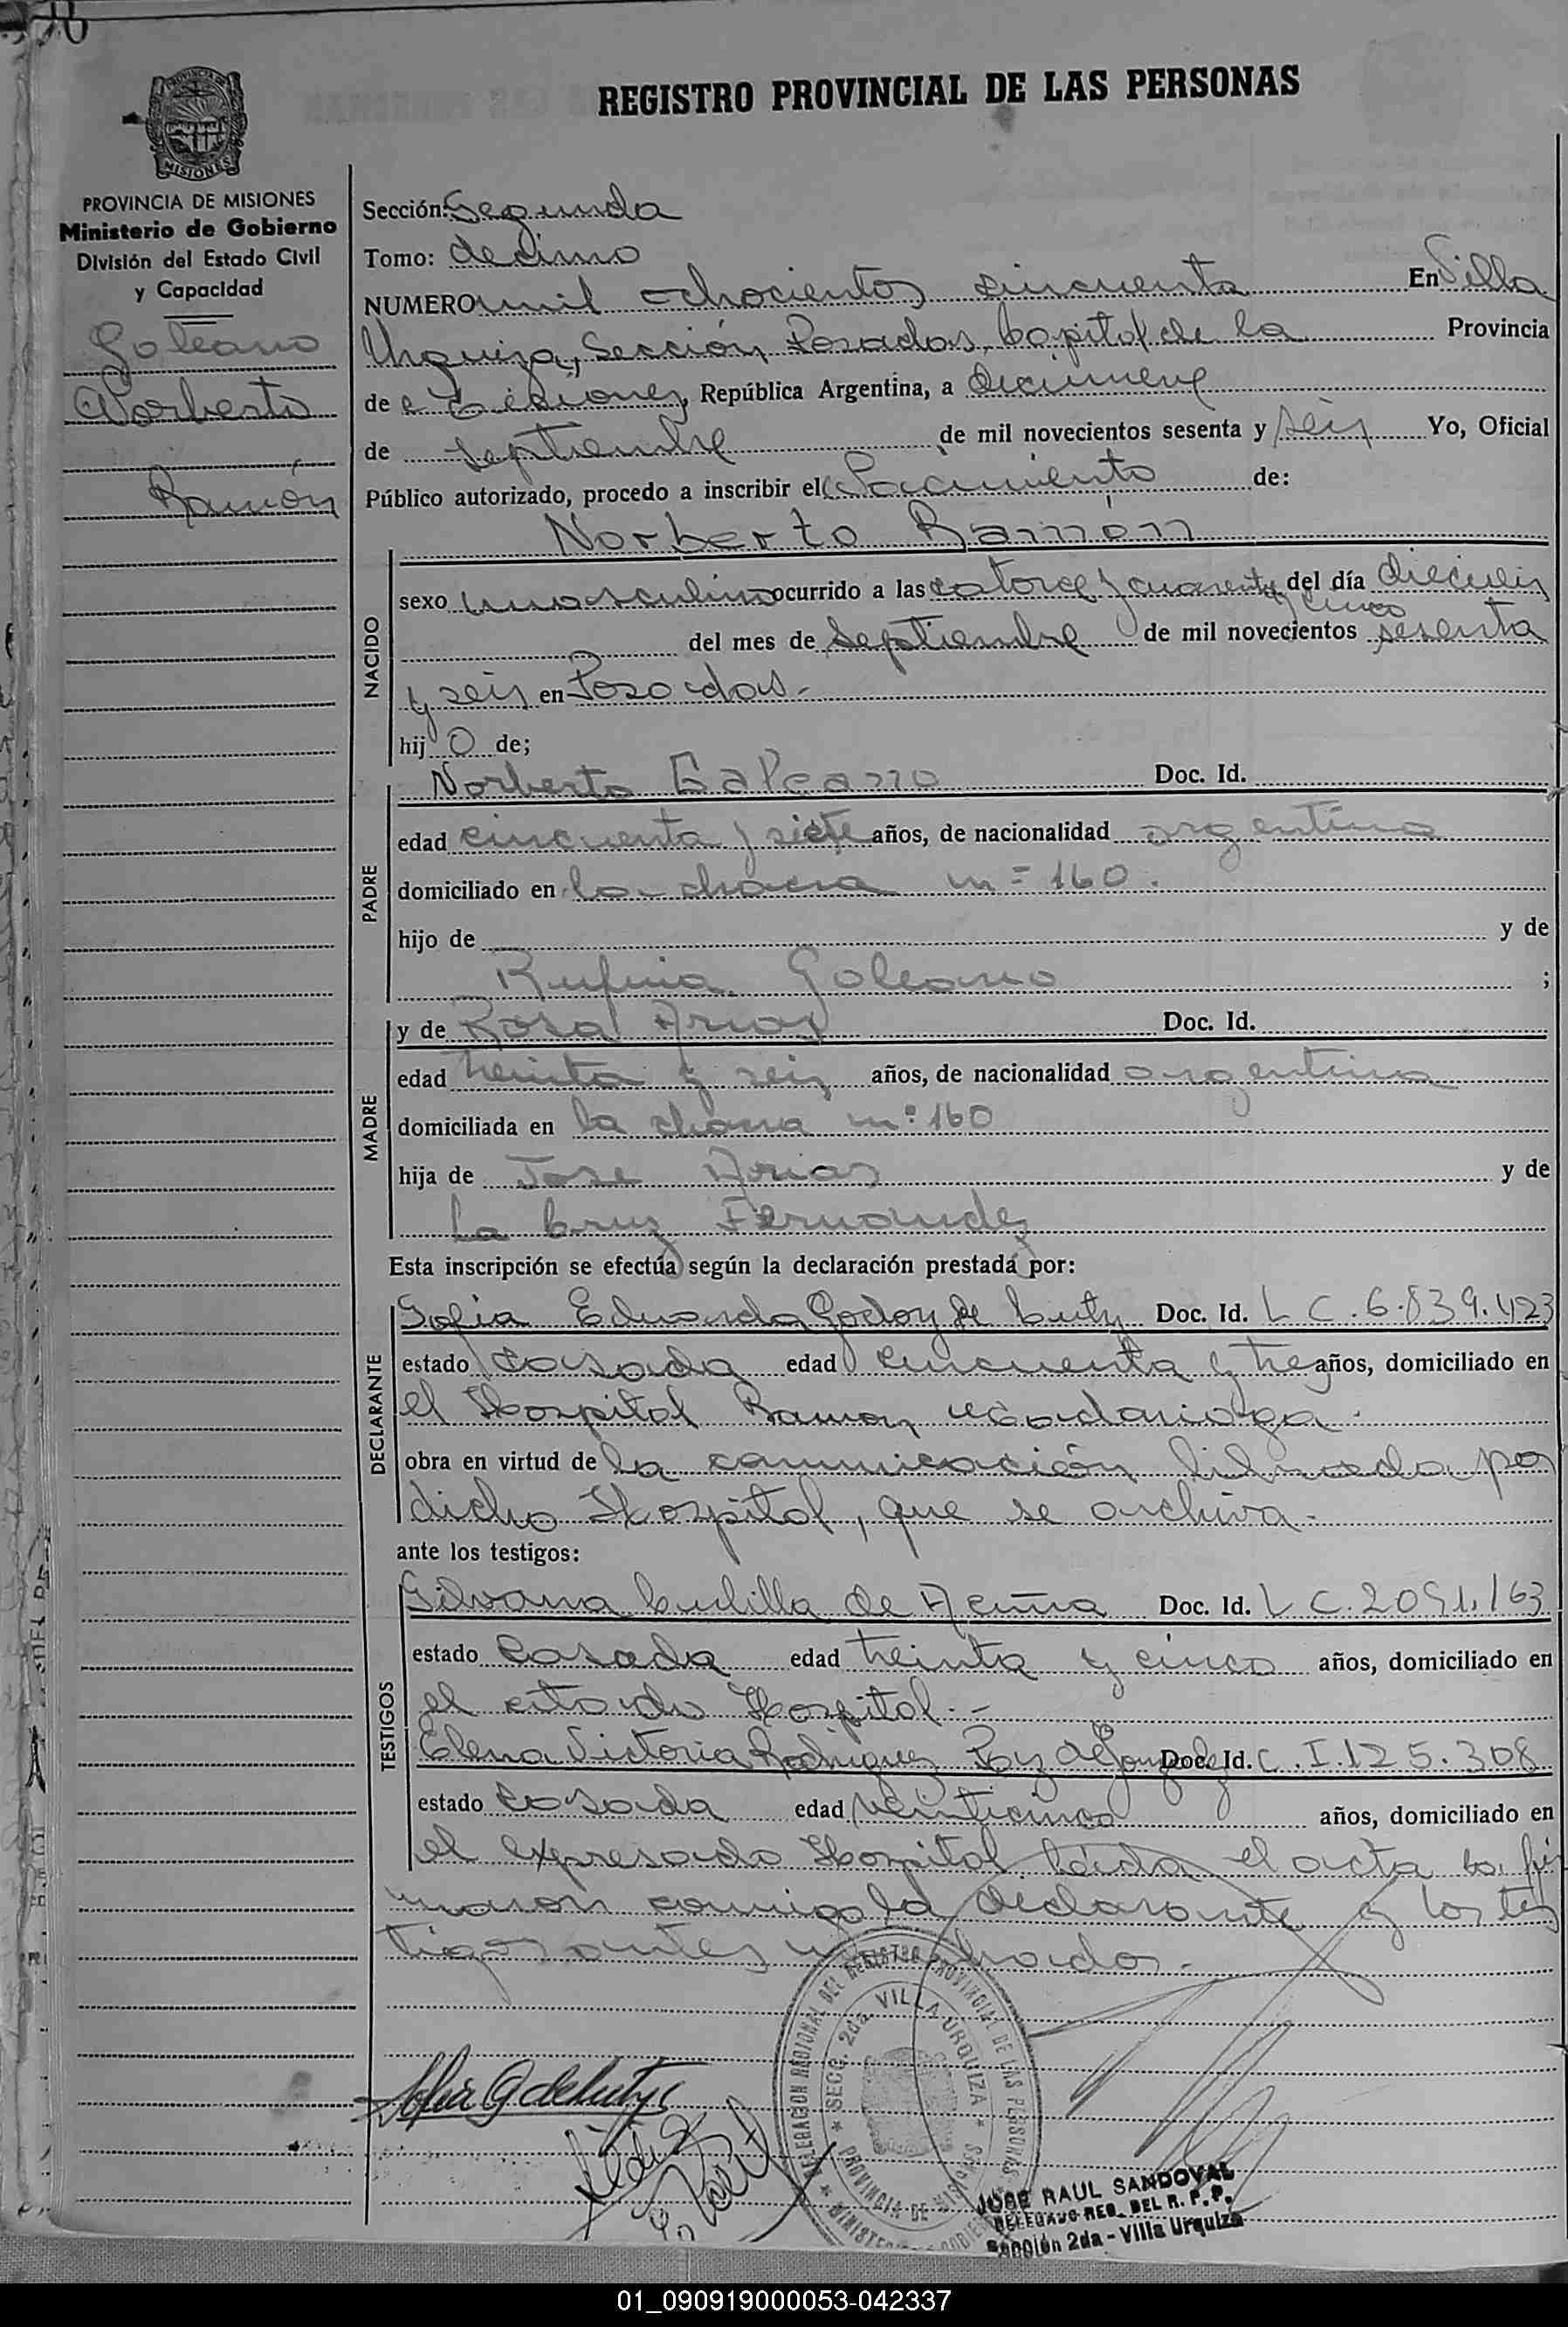 REGISTRO PROVINCIAL DE LAS PERSONAS
MISIONES
PROVINCIA DE MISIONES
Ministerio de Gobierno
División del Estado Civil
y Capacidad
Galeano
Norberto
Ramón
Sección: Segunda
Tomo: decimo
NUMERO mil ochocientos cincuenta En Villa
Urquiza, Sección Posadas, Capital de la Provincia
de Misiones, República Argentina, a diecinueve
de septiembre de mil novecientos sesenta y seis Yo, Oficial
Público autorizado, procedo a inscribir el Nacimiento de:
Norberto Ramón
NACIDO
sexo masculino ocurrido a las catorce y cuarenta y cinco del día dieciseis
del mes de Septiembre de mil novecientos sesenta
y seis en Posadas.-
hij o de;
PADRE
Norberto Galeano Doc. Id.
edad cincuenta y siete años, de nacionalidad argentina
domiciliado en la chacra n= 160.
hijo de y de
Rufina Galeano ;
MADRE
y de Rosa Arias Doc. Id.
edad treinta y seis años, de nacionalidad argentina
domiciliada en la chacra nº 160
hija de Jose Arias y de
La Cruz Fernandez
Esta inscripción se efectúa según la declaración prestada por:
DECLARANTE
Sofia Eduarda Godoy de Doc. Id. L C. 6.839.423
estado casada edad cincuenta y tres años, domiciliado en
el Hospital Ramon Madariaga.
obra en virtud de la comunicación librada por
dicho Hospital, que se archiva.-
ante los testigos:
TESTIGOS
Silvana de Acuña Doc. Id. L C. 2091.163
estado casada edad treinta y cinco años, domiciliado en
el citado Hospital.-
Elena Victoria Rodriguez de Gonzalez Doc. Id. C. I. 125.308
estado casada edad veinticinco años, domiciliado en
el expresado Hospital leída el acta la fir
maron conmigo la declarante y los tes
tigos antes nombrados.-
DELEGACION REGIONAL DEL REGISTRO PROVINCIAL DE LAS PERSONAS
SECC. 2da VILLA URQUIZA
PROVINCIA DE MISIONES
JOSE RAUL SANDOVAL
DELEGADO REG. DEL R. P. P.
Sección 2da - Villa Urquiza
01_090919000053-042337